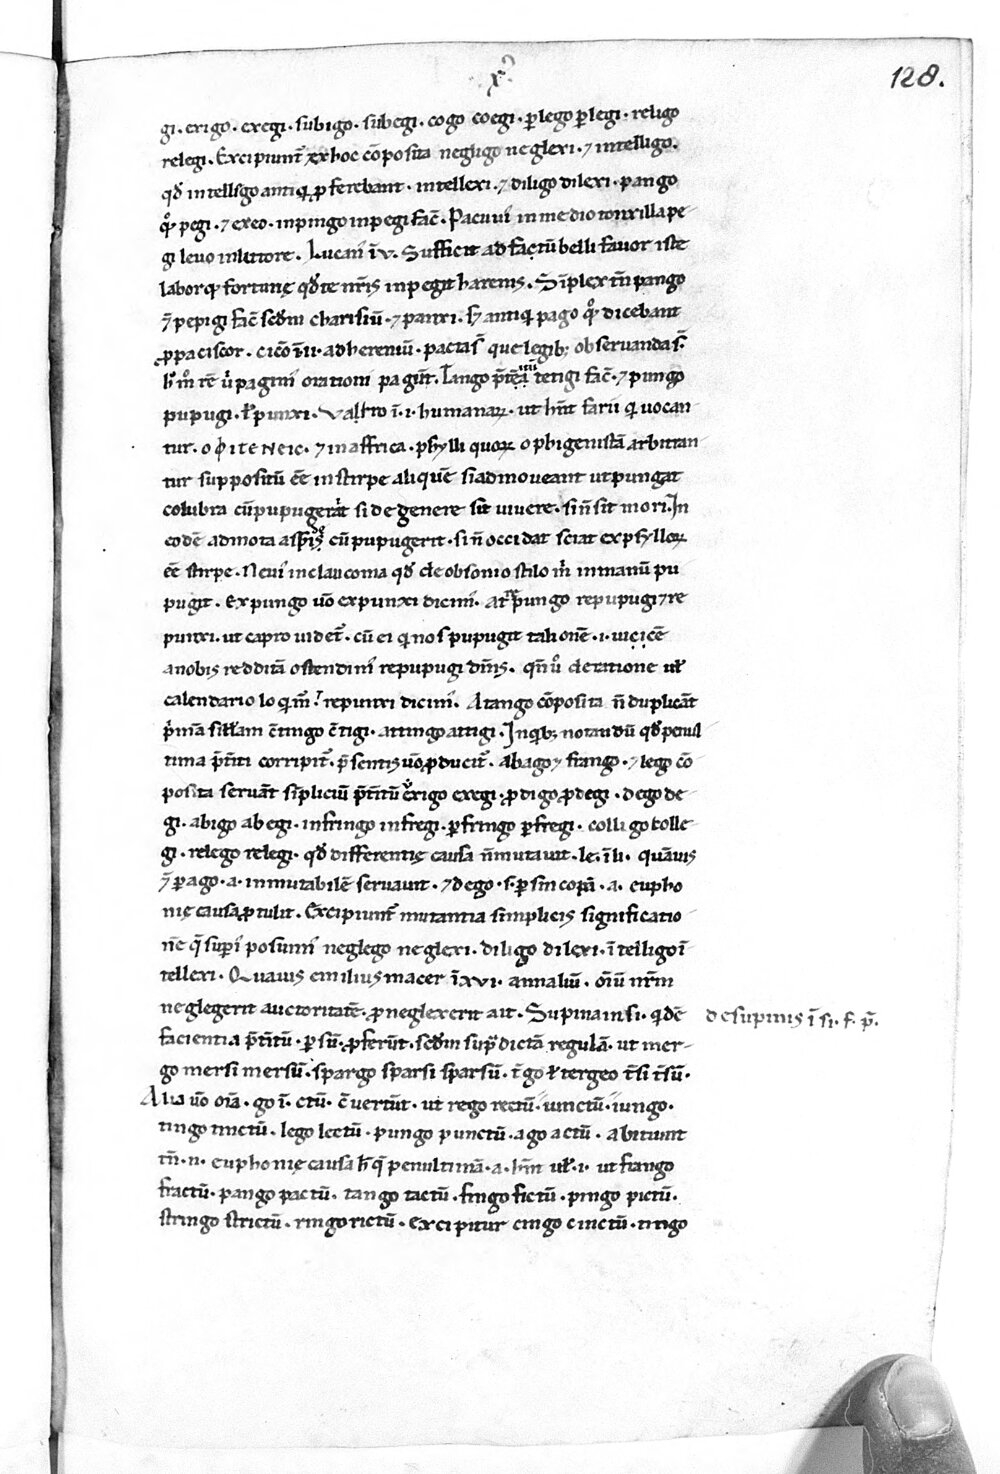 x
128.
gi. exigo. exegi. subigo. subegi. cogo coegi. plego plegi. religo
relegi. Excipiunt̄ ex hoc cōposita negligo neglexi. ⁊ intelligo.
qđ intellego antiq̇ pferebant. intellexi. ⁊ diligo dilexi. pango
pegi. ⁊ exeo. inpingo inpegi fac̄. Pacuui in medio tonsilla pe
gi leuo in littore. Lucan' ī v. Sufficit ad factū belli fauor iste
laborq; fortunę qđ te nr̄is inpegit harenis. Sīplex tn̄ pango
⁊ pepigi fac̄ scđm charisiū. ⁊ panxi. antiq̇ pago dicebant
p paciscor. cicō ī ii. ad hereniū. pactas que legib; obseruanda s̄.
pagini orationi pagūt. Tango tetigi fac̄. ⁊ pungo
pupugi. ł punxi. Varro ī. i. humanaꝝ. ut farii q̇ uocan
tur. οφιτενεις. ⁊ in affrica. phylli quoꝝ ophigenistā arbitran
tur suppositū eē in stirpe aliquē si admoueant ut pungat
colubra cū pupugerat si de genere sit uiuere. si n̄ sit mori. In
codē admota aspis cū pupugerit. si n̄ occidat sciat ex phylloꝝ
eē stirpe. Neui' in claucoma qđ de obsonio stilo m̄ in manū pu
pugit. Expungo uō expunxi dicim'. At repungo repupugi ⁊ re
punxi. ut capro uidet̄. cū ei qui nos pupugit talionē. i. uicicē
a nobis redditā ostendim' repupugi dm̄s. qn̄ uº de ratione uł
calendario loqm̄' repunxi dicim'. A tango cōposita n̄ duplicāt
p̄mā sillam c̄tingo c̄tigi. attingo attigi. In quib; notandū qđ penul
tima p̄titi corripit̄. p̄sentis uō pducit̄. Ab ago ⁊ frango. ⁊ lego cō
posita seruāt sīpliciū p̄titū exigo exegi. pdigo pdegi. dego de
gi. abigo abegi. infringo infregi. pfringo pfregi. colligo colle
gi. relego relegi. qđ differentię causa n̄ mutauit. le. ī li. quāuis
⁊ pago. a. inmutabilē seruauit. ⁊ dego. s. p sincopā. a. eupho
nię causa ptulit. Excipiunt̄ mutantia simplicis significatio
nē q̄ supi' posuim' neglego neglexi. diligo dilexi. ītelligo ī
tellexi. Quāuis emilius macer ī xvi. annaliū. oīū nr̄m
neglegerit auctoritatē. p neglexerit ait. Supina in si. q̇dē
desupinis ī si. f. p̄.
facientia p̄titū. p sū. pferūt. scđm sup̄dictā regulā. ut mer
go mersi mersū. spargo sparsi sparsū. t̄go ł tergeo t̄si t̄sū.
Alia uō oīa. go ī. ctū. c̄uertūt. ut rego rectū iunctū iungo.
tingo tinctū. lego lectū. pungo punctū. ago actū. abiciunt
tn̄. n. euphonię causa ħ q̄ penultimā. a. hn̄t uł. i. ut frango
fractū. pango pactū. tango tactū. fingo fictū. pingo pictū.
stringo strictū. ringo rictū. excipitur cingo cinctū. tingo